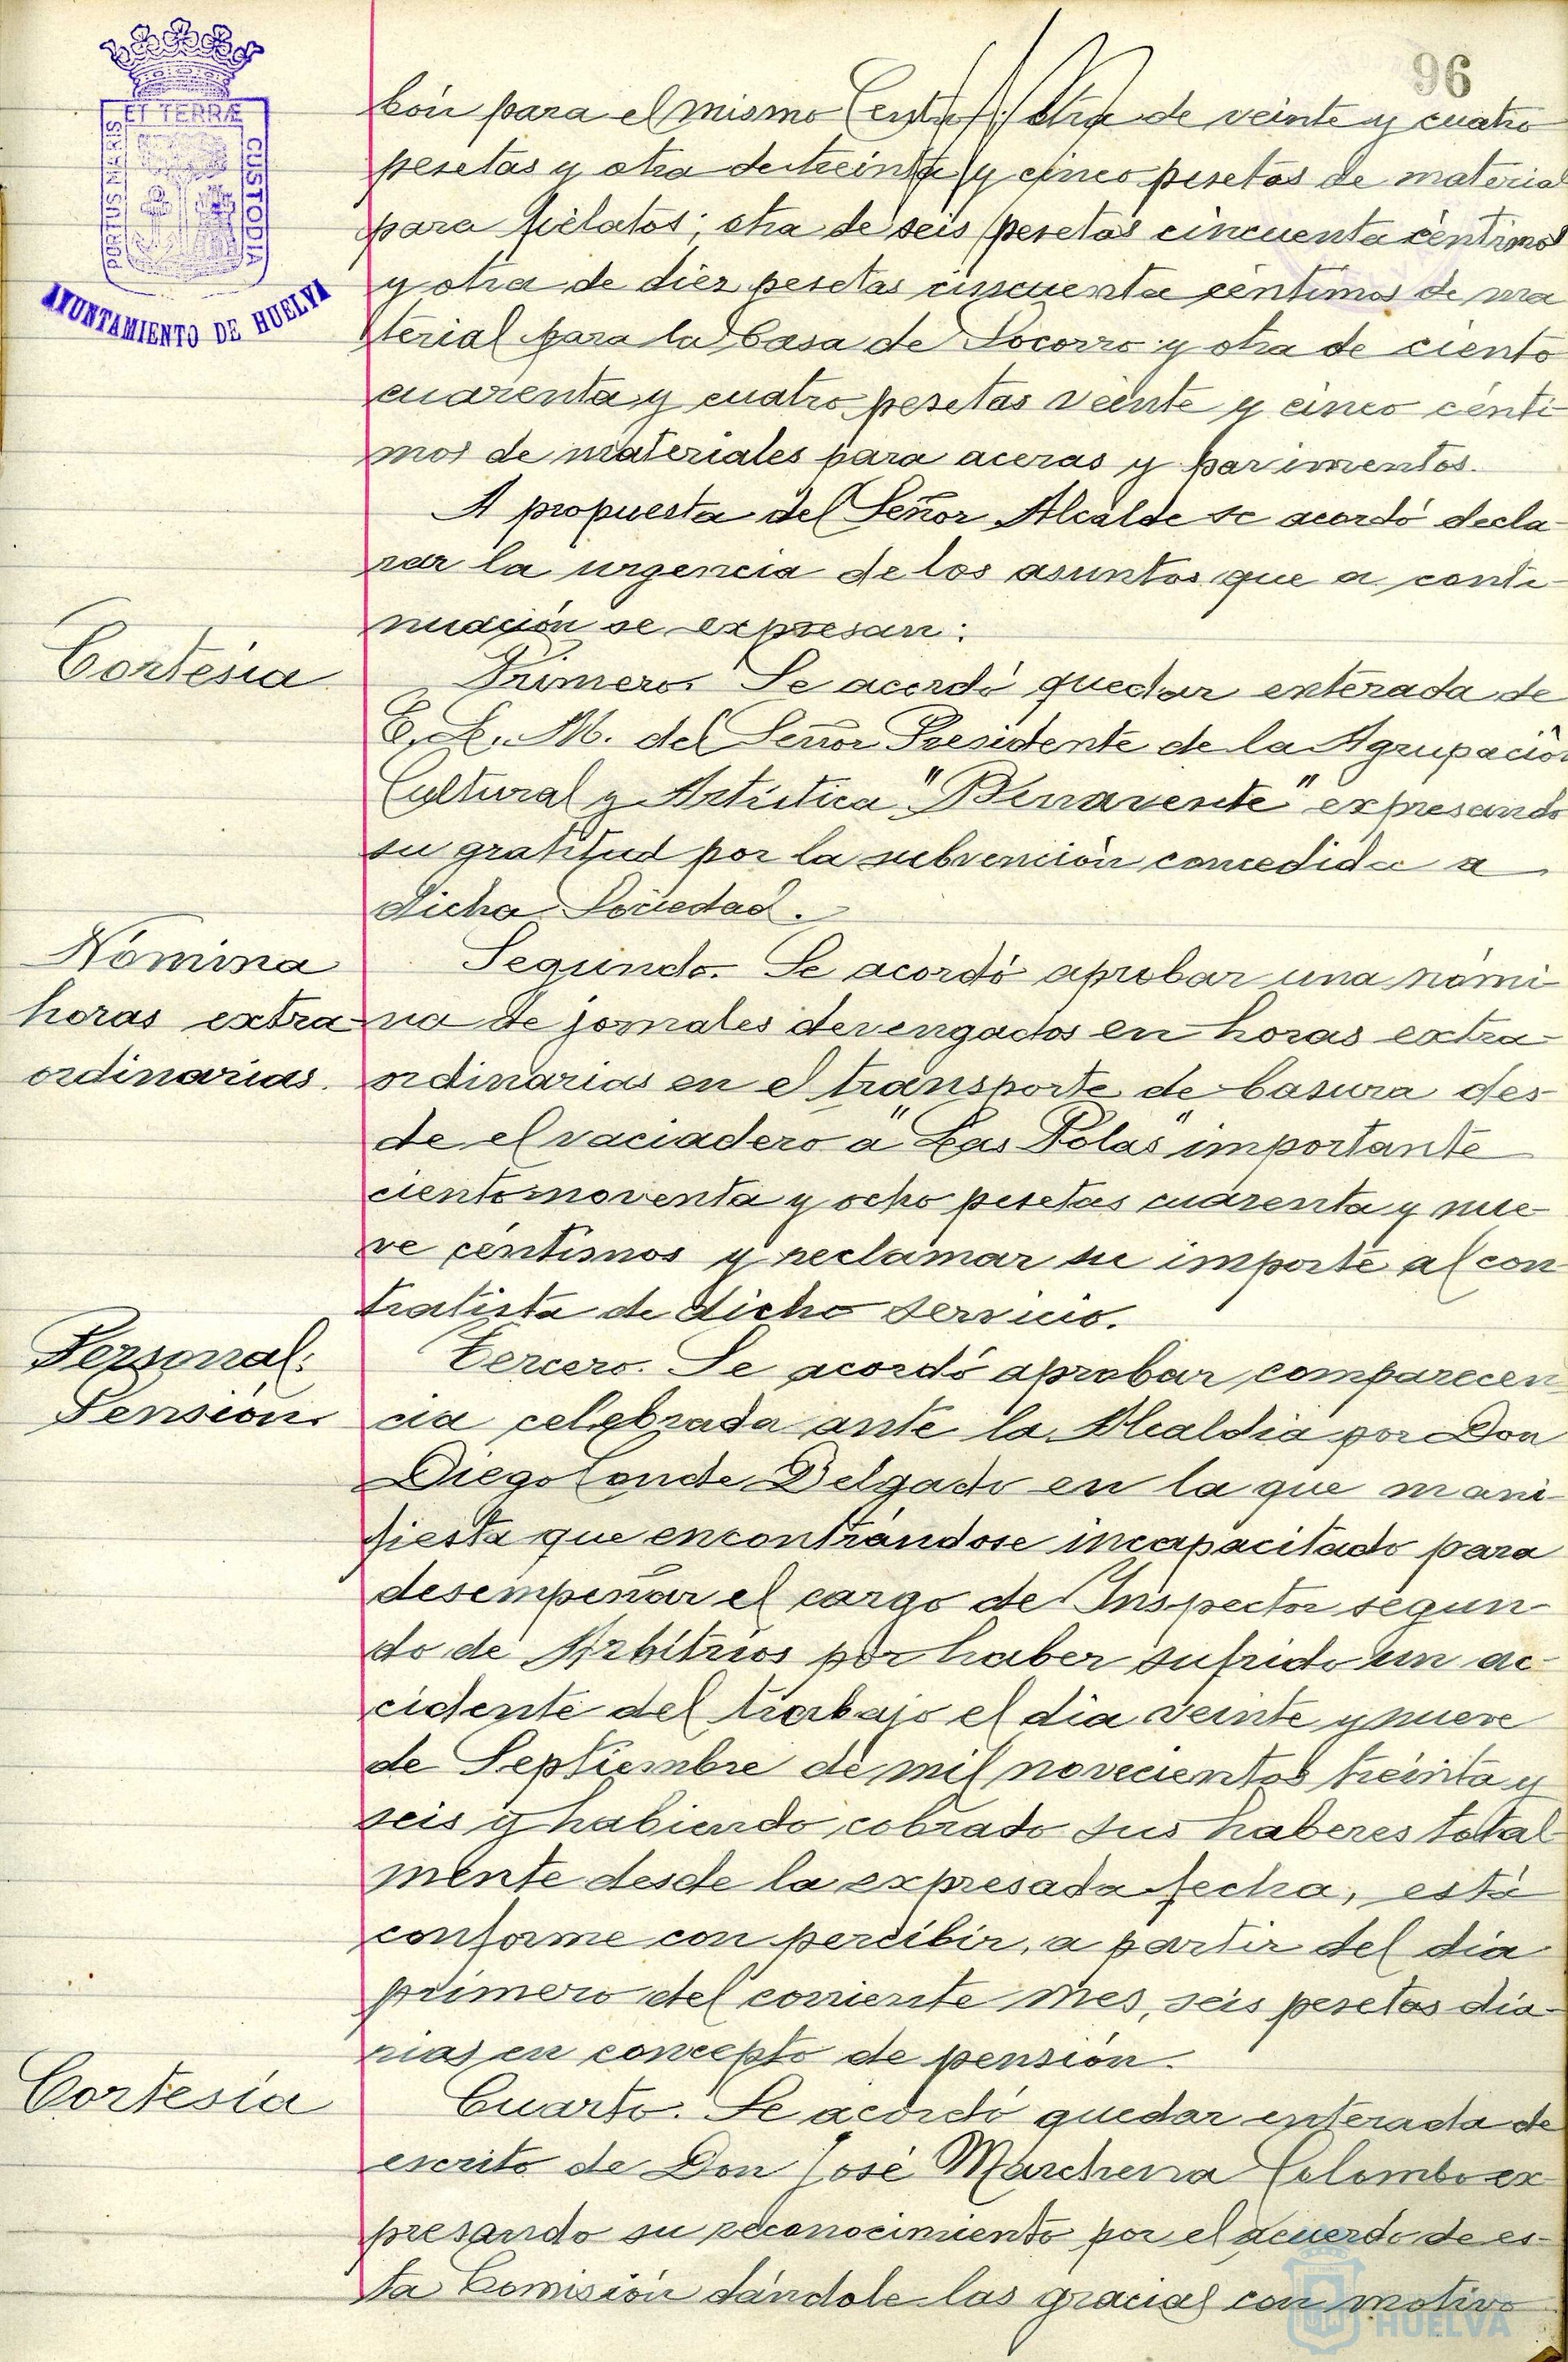 96
PORTUS MARIS
ET TERRÆ
CUSTODIA
AYUNTAMIENTO DE HUELVA
bón para el mismo Centro; otra de veinte y cuatro
pesetas y otra de treinta y cinco pesetas de material
para fielatos; otra de seis pesetas cincuenta céntimos
y otra de diez pesetas cincuenta céntimos de ma
terial para la Casa de Socorro y otra de ciento
cuarenta y cuatro pesetas veinte y cinco cénti
mos de materiales para aceras y pavimentos.
A propuesta del Señor Alcalde se acordó decla-
rar la urgencia de los asuntos que a conti-
nuación se expresan:
Cortesia
Primero. Se acordó quedar enterada de
B. L. M. del Señor Presidente de la Agrupación
Cultural y Artística "Benavente" expresando
su gratitud por la subvención concedida a
dicha Sociedad.
Nómina
horas extra
ordinarias.
Segundo. Se acordó aprobar una nómi
na de jornales devengados en horas extra-
ordinarias en el transporte de basura des-
de el vaciadero a "Las Polas" importante
ciento noventa y ocho pesetas cuarenta y nue-
ve céntimos y reclamar su importe al con
tratista de dicho servicio.
Personal:
Pensión.
Tercero. Se acordó aprobar comparecen
cia celebrada ante la Alcaldía por Don
Diego Conde Delgado en la que mani-
fiesta que encontrándose incapacitado para
desempeñar el cargo de Inspector segun-
do de Arbitrios por haber sufrido un ac-
cidente del trabajo el día veinte y nueve
de Septiembre de mil novecientos treinta y
seis y habiendo cobrado sus haberes total-
mente desde la expresada fecha, está
conforme con percibir, a partir del día
primero del corriente mes, seis pesetas dia-
rias en concepto de pensión.
Cortesía
Cuarto. Se acordó quedar enterada de
escrito de Don José Marchena Colombo ex
presando su reconocimiento por el acuerdo de es-
ta Comisión dándole las gracias con motivo
HUELVA